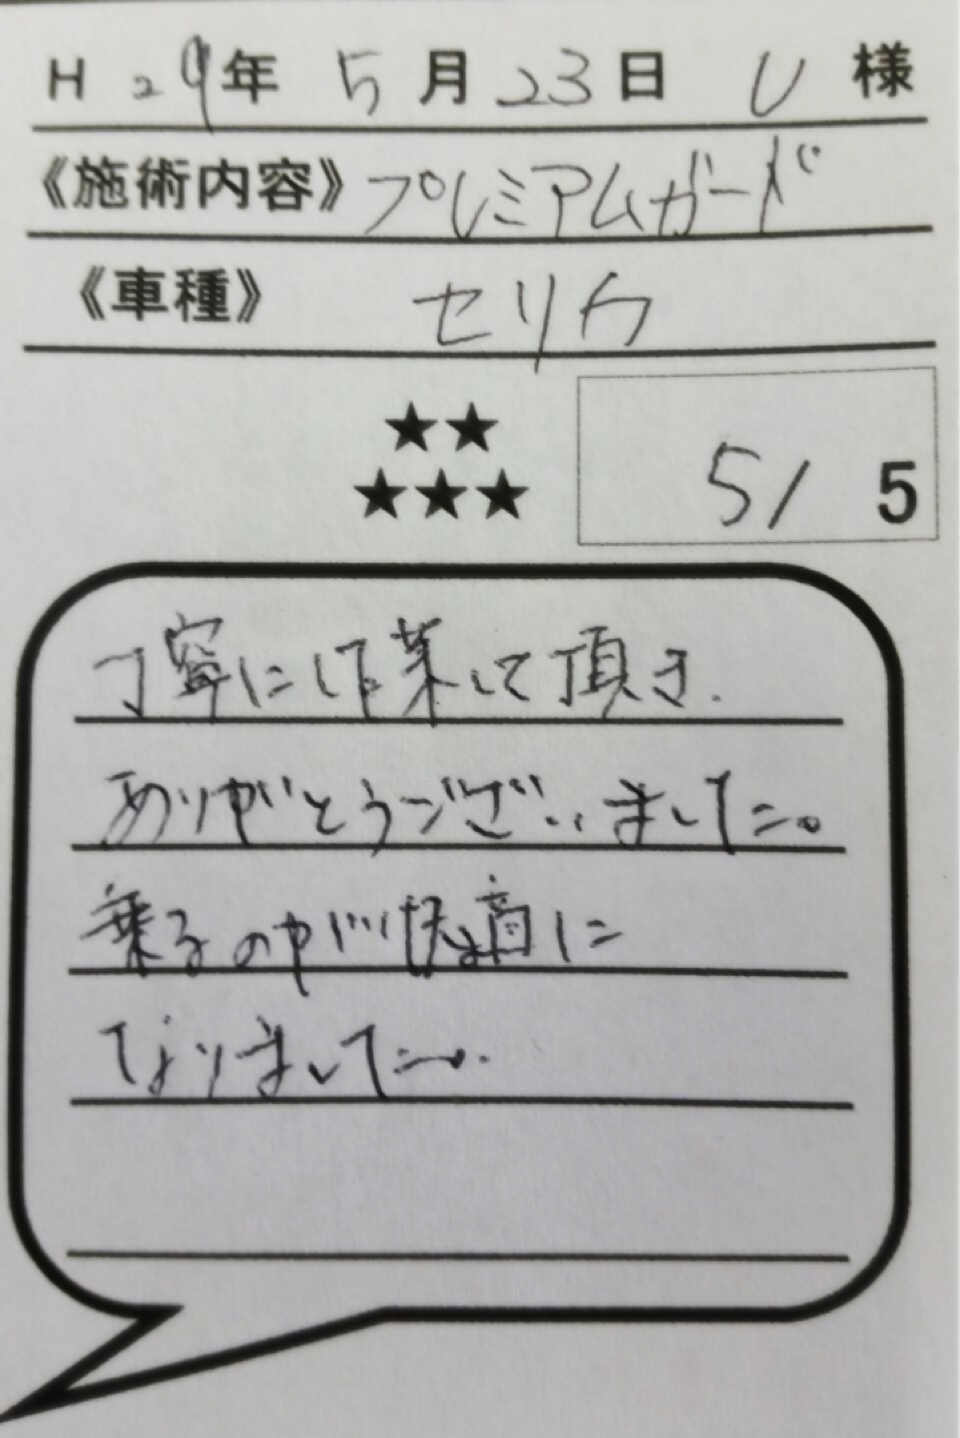 H 29年 5月 23日 U 様
《施術内容》プレミアムガード
《車種》 セリカ
★★
★★★
5/5
丁寧に作業して頂き、
ありがとうございました。
乗るのが快適に
なりました。